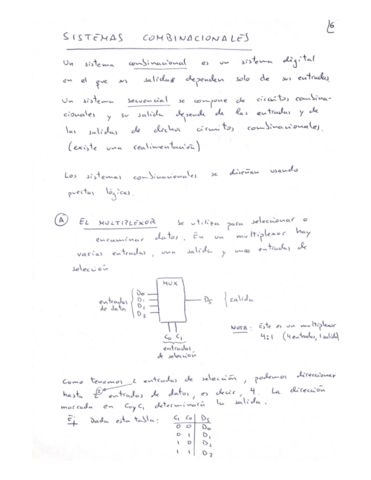 16
SISTEMAS COMBINACIONALES
Un sistema combinacional es un sistema digital
en el que sus salidas dependen solo de sus entradas
Un sistema secuencial se compone de circuitos combina-
cionales y su salida depende de las entradas y de
las salidas de dichos circuitos combinacionales.
(existe una realimentación)
Los sistemas combinacionales se diseñan usando
puertas lógicas.
A EL MULTIPLEXOR se utiliza para seleccionar o
encaminar datos. En un multiplexor hay
varias entradas, una salida y unas entradas de
selección
MUX
entradas de data
D0
D1
D2
D3
DS salida
C0 C1
entradas
de selección
NOTA: Este es un multiplexor
4:1 (4 entradas, 1 salida)
Como tenemos 2 entradas de selección, podemos direccionar
hasta entradas de datos, es decir, 4. La dirección
marcada en C0 y C1 determinará la salida.
Ej Dada esta tabla:
C1 C0 DS
0 0 D0
0 1 D1
1 0 D2
1 1 D3